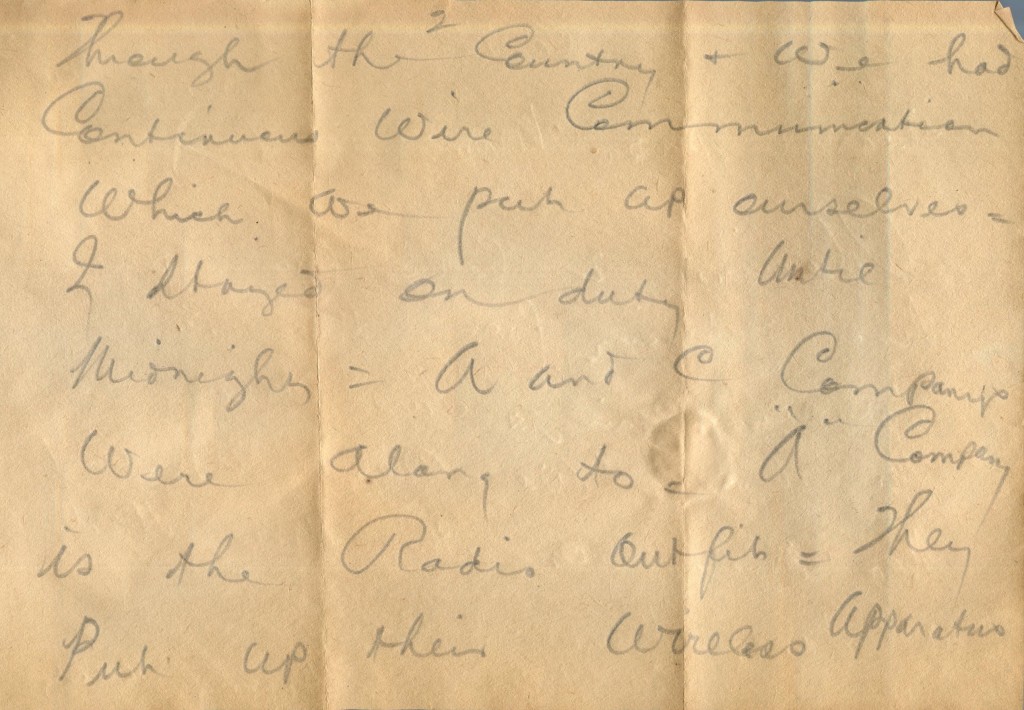 2
Through the Country + We had
Continuous Wire Communication
Which we put up ourselves =
I stayed on duty until
Midnight = A and C Companies
Were along to = "A" Company
is the Radio Outfit = They
Put up their Wireless Apparatus